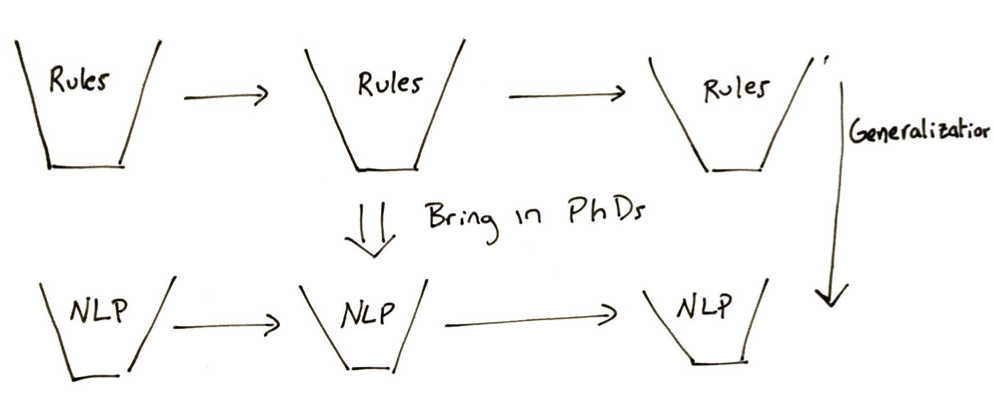 Rules
Rules
Rules
Generalization
Bring in PhDs
NLP
NLP
NLP